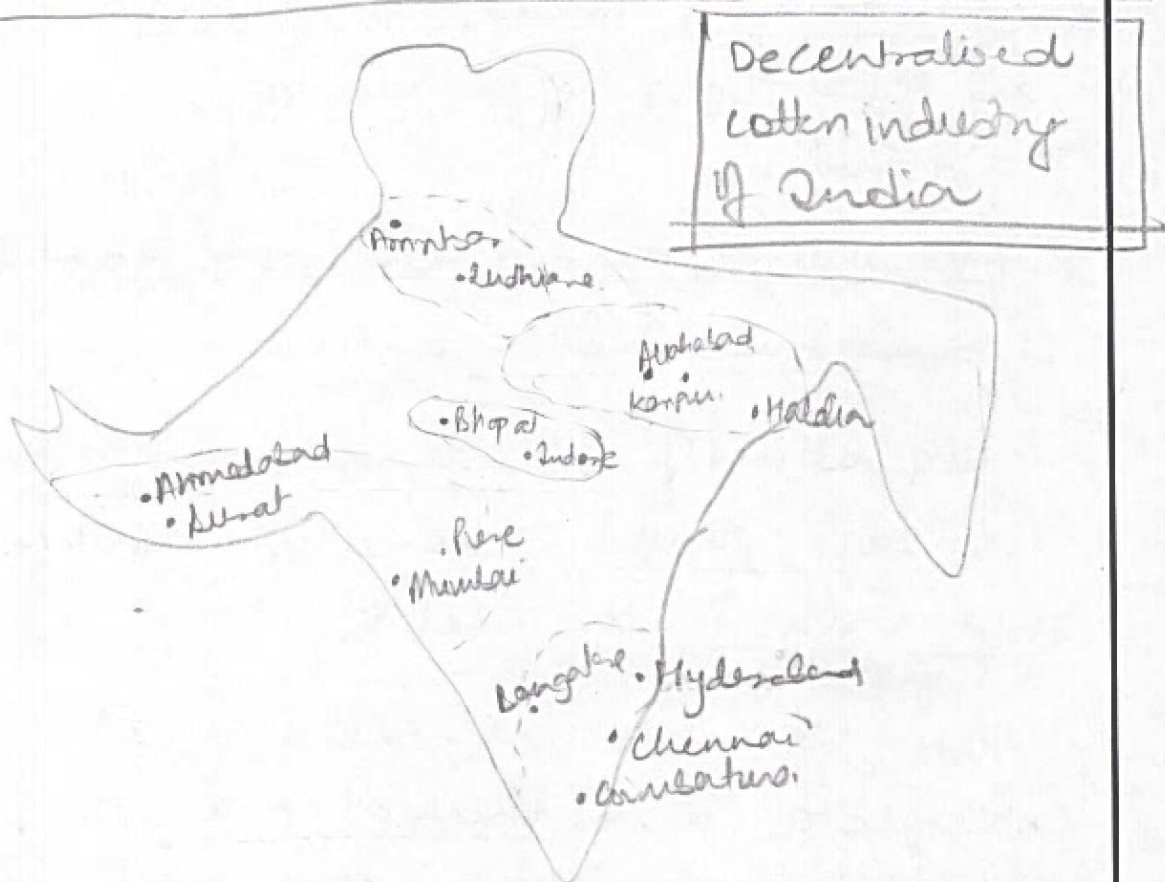 Decentralised
cotton industry
of India
Amritsar
Ludhiana
Allahabad
Kanpur
Haldia
Bhopal
Indore
Ahmedabad
Surat
Pune
Mumbai
Bangalore
Hyderabad
Chennai
Coimbatura